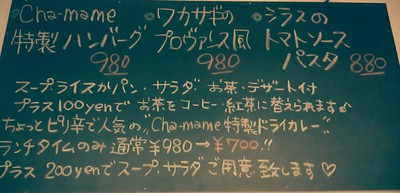 Cha-mame
特製ハンバーグ
980
ワカサギの
プロヴァンス風
980
シラスの
トマトソース
パスタ 880
スープ・ライスかパン・サラダ お茶・デザート付
プラス100yenで お茶をコーヒー・紅茶に替えられます♪
ちょっとピリ辛で人気の"Cha-mame特製ドライカレー"
ランチタイムのみ 通常¥980→¥700!!
プラス 200yenでスープ・サラダご用意致します♡